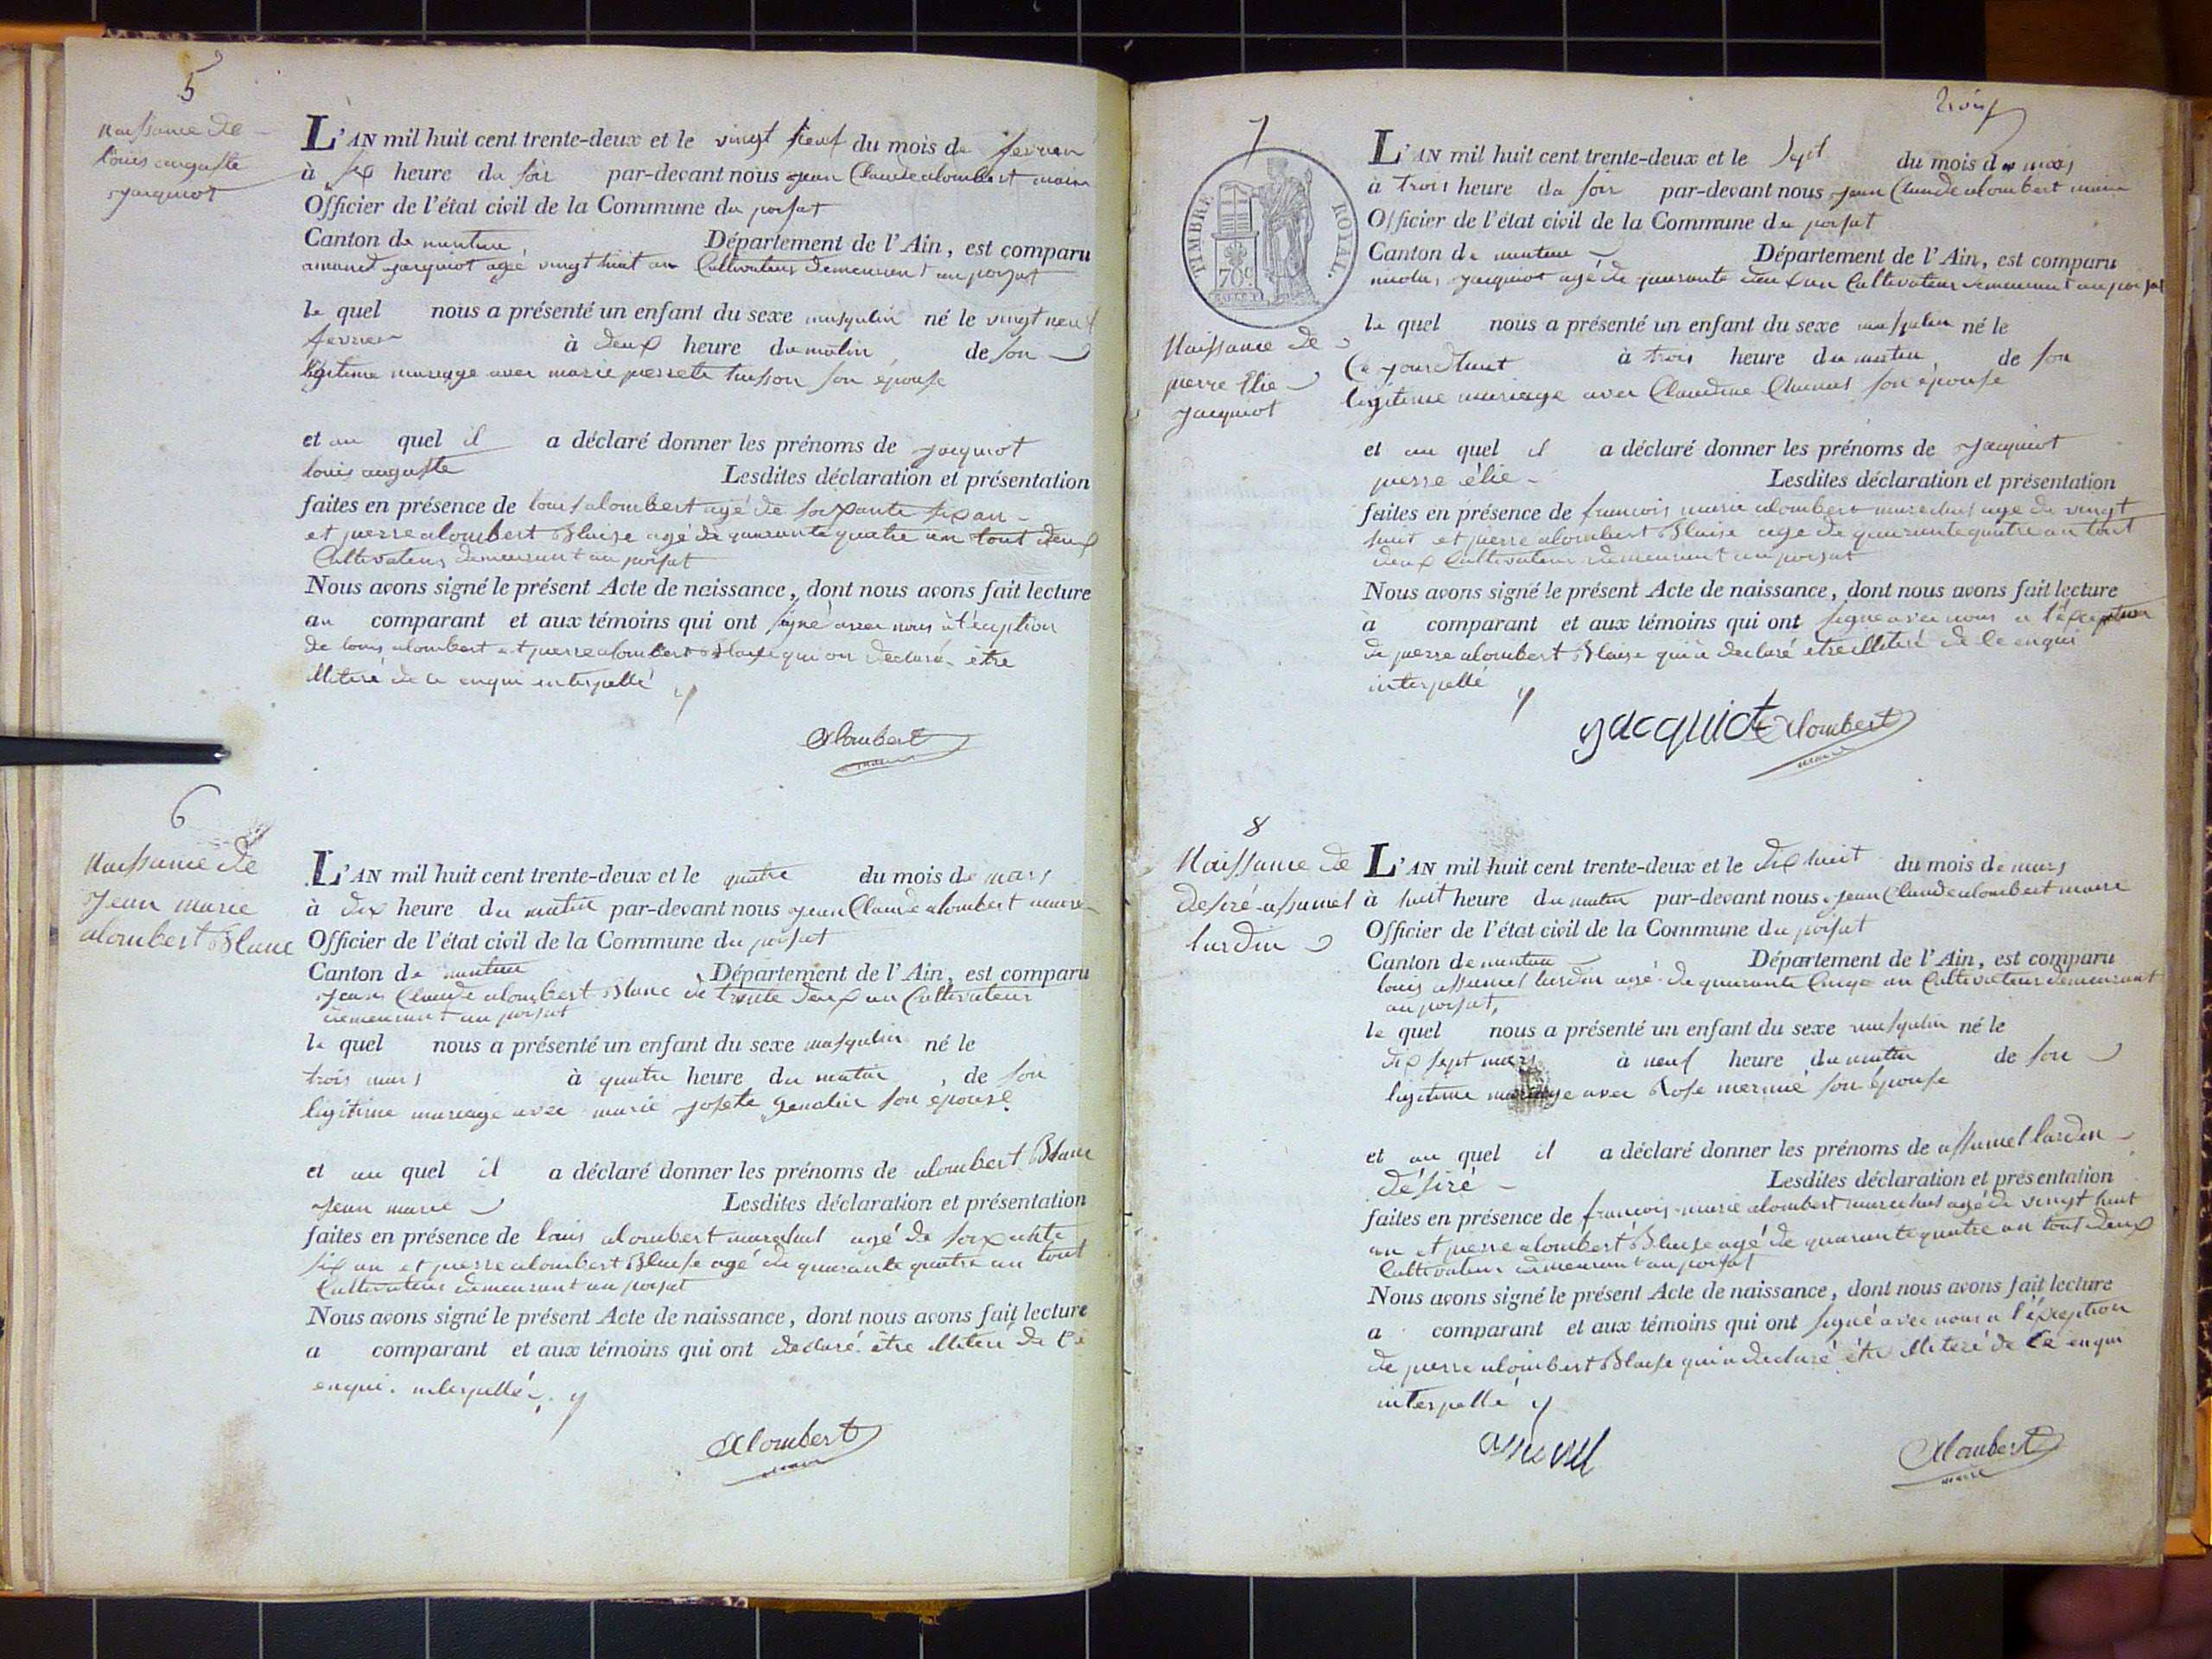 5
Naissance de
louis auguste
Jacquiot
L'AN mil huit cent trente-deux et le vingt neuf du mois de fevrier
à six heure du soir par-devant nous jean Claude alombert maire
Officier de l'état civil de la Commune du poisat
Canton de nantua, Département de l'Ain, est comparu
amand jacquiot agé vingt huit an Cultivateur demeurant au poisat
le quel nous a présenté un enfant du sexe masqulin né le vingt neuf
fevrier à deux heure du matin, de son
légitime mariage avec marie perrete husson son épouse
et au quel il a déclaré donner les prénoms de jacquiot
louis auguste Lesdites déclaration et présentation
faites en présence de louis alombert agé de soixante six an
et pierre alombert Blaise agé de quarante quatre an tout deux
Cultivateurs demeurant au poisat
Nous avons signé le présent Acte de naissance, dont nous avons fait lecture
au comparant et aux témoins qui ont signé avec nous à l'éxception
de louis alombert et pierre alombert Blaise qui on declaré être
illiteré de ce enqui interpellé
Alombert
maire
6
Naissance de
Jean marie
alombert Blanc
L'AN mil huit cent trente-deux et le quatre du mois de mars
à dix heure du matin par-devant nous jean Claude alombert maire
Officier de l'état civil de la Commune du poisat
Canton de nantua Département de l'Ain, est comparu
jean Claude alombert Blanc de trente deux an Cultivateur
demeurant au poisat
le quel nous a présenté un enfant du sexe masqulin né le
trois mars à quatre heure du matin, de son
légitime mariage avec marie josete son épouse
et au quel il a déclaré donner les prénoms de alombert Blanc
jean marie Lesdites déclaration et présentation
faites en présence de louis alombert marechal agé de soixante
six an et pierre alombert Blaise agé de quarante quatre an tout
Cultivateurs demeurant au poisat
Nous avons signé le présent Acte de naissance, dont nous avons fait lecture
a comparant et aux témoins qui ont declaré être illiteré de ce
enqui interpellé
Alombert
maire
trois
7
TIMBRE ROYAL.
70c
Naissance de
pierre Elie
jacquiot
L'AN mil huit cent trente-deux et le sept du mois de mars
à trois heure du soir par-devant nous jean Claude alombert maire
Officier de l'état civil de la Commune du poisat
Canton de nantua Département de l'Ain, est comparu
nicolas jacquiot agé de quarante deux an Cultivateur demeurant au poisat
le quel nous a présenté un enfant du sexe masqulin né le
Ce jourdhuit à trois heure du matin, de son
légitime mariage avec Claudine son épouse
et au quel il a déclaré donner les prénoms de jacquiot
pierre élie Lesdites déclaration et présentation
faites en présence de francois marie alombert marechal agé de vingt
huit et pierre alombert Blaise agé de quarante quatre an tout
deux Cultivateur demeurant au poisat
Nous avons signé le présent Acte de naissance, dont nous avons fait lecture
à comparant et aux témoins qui ont signé avec nous a l'éxception
de pierre alombert Blaise qui a declaré etre illiteré de ce enqui
interpellé
jacquiot Alombert
maire
8
Naissance de
desiré assumel
lurdin
L'AN mil huit cent trente-deux et le dix huit du mois de mars
à huit heure du matin par-devant nous jean Claude alombert maire
Officier de l'état civil de la Commune du poisat
Canton de nantua Département de l'Ain, est comparu
louis assumel lurdin agé de quarante Cinqe an Cultivateur demeurant
au poisat,
le quel nous a présenté un enfant du sexe masqulin né le
dix sept mars à neuf heure du matin de son
légitime mariage avec Rose mermié son épouse
et au quel il a déclaré donner les prénoms de assumel lurdin
désiré Lesdites déclaration et présentation
faites en présence de francois marie alombert marechal agé de vingt huit
an et pierre alombert Blaise agé de quarante quatre an tout deux
Cultivateur demeurant au poisat
Nous avons signé le présent Acte de naissance, dont nous avons fait lecture
a comparant et aux témoins qui ont signé avec nous a l'éxception
de pierre alombert Blaise qui a declaré être illiteré de ce enqui
interpellé
assumel
Alombert
maire